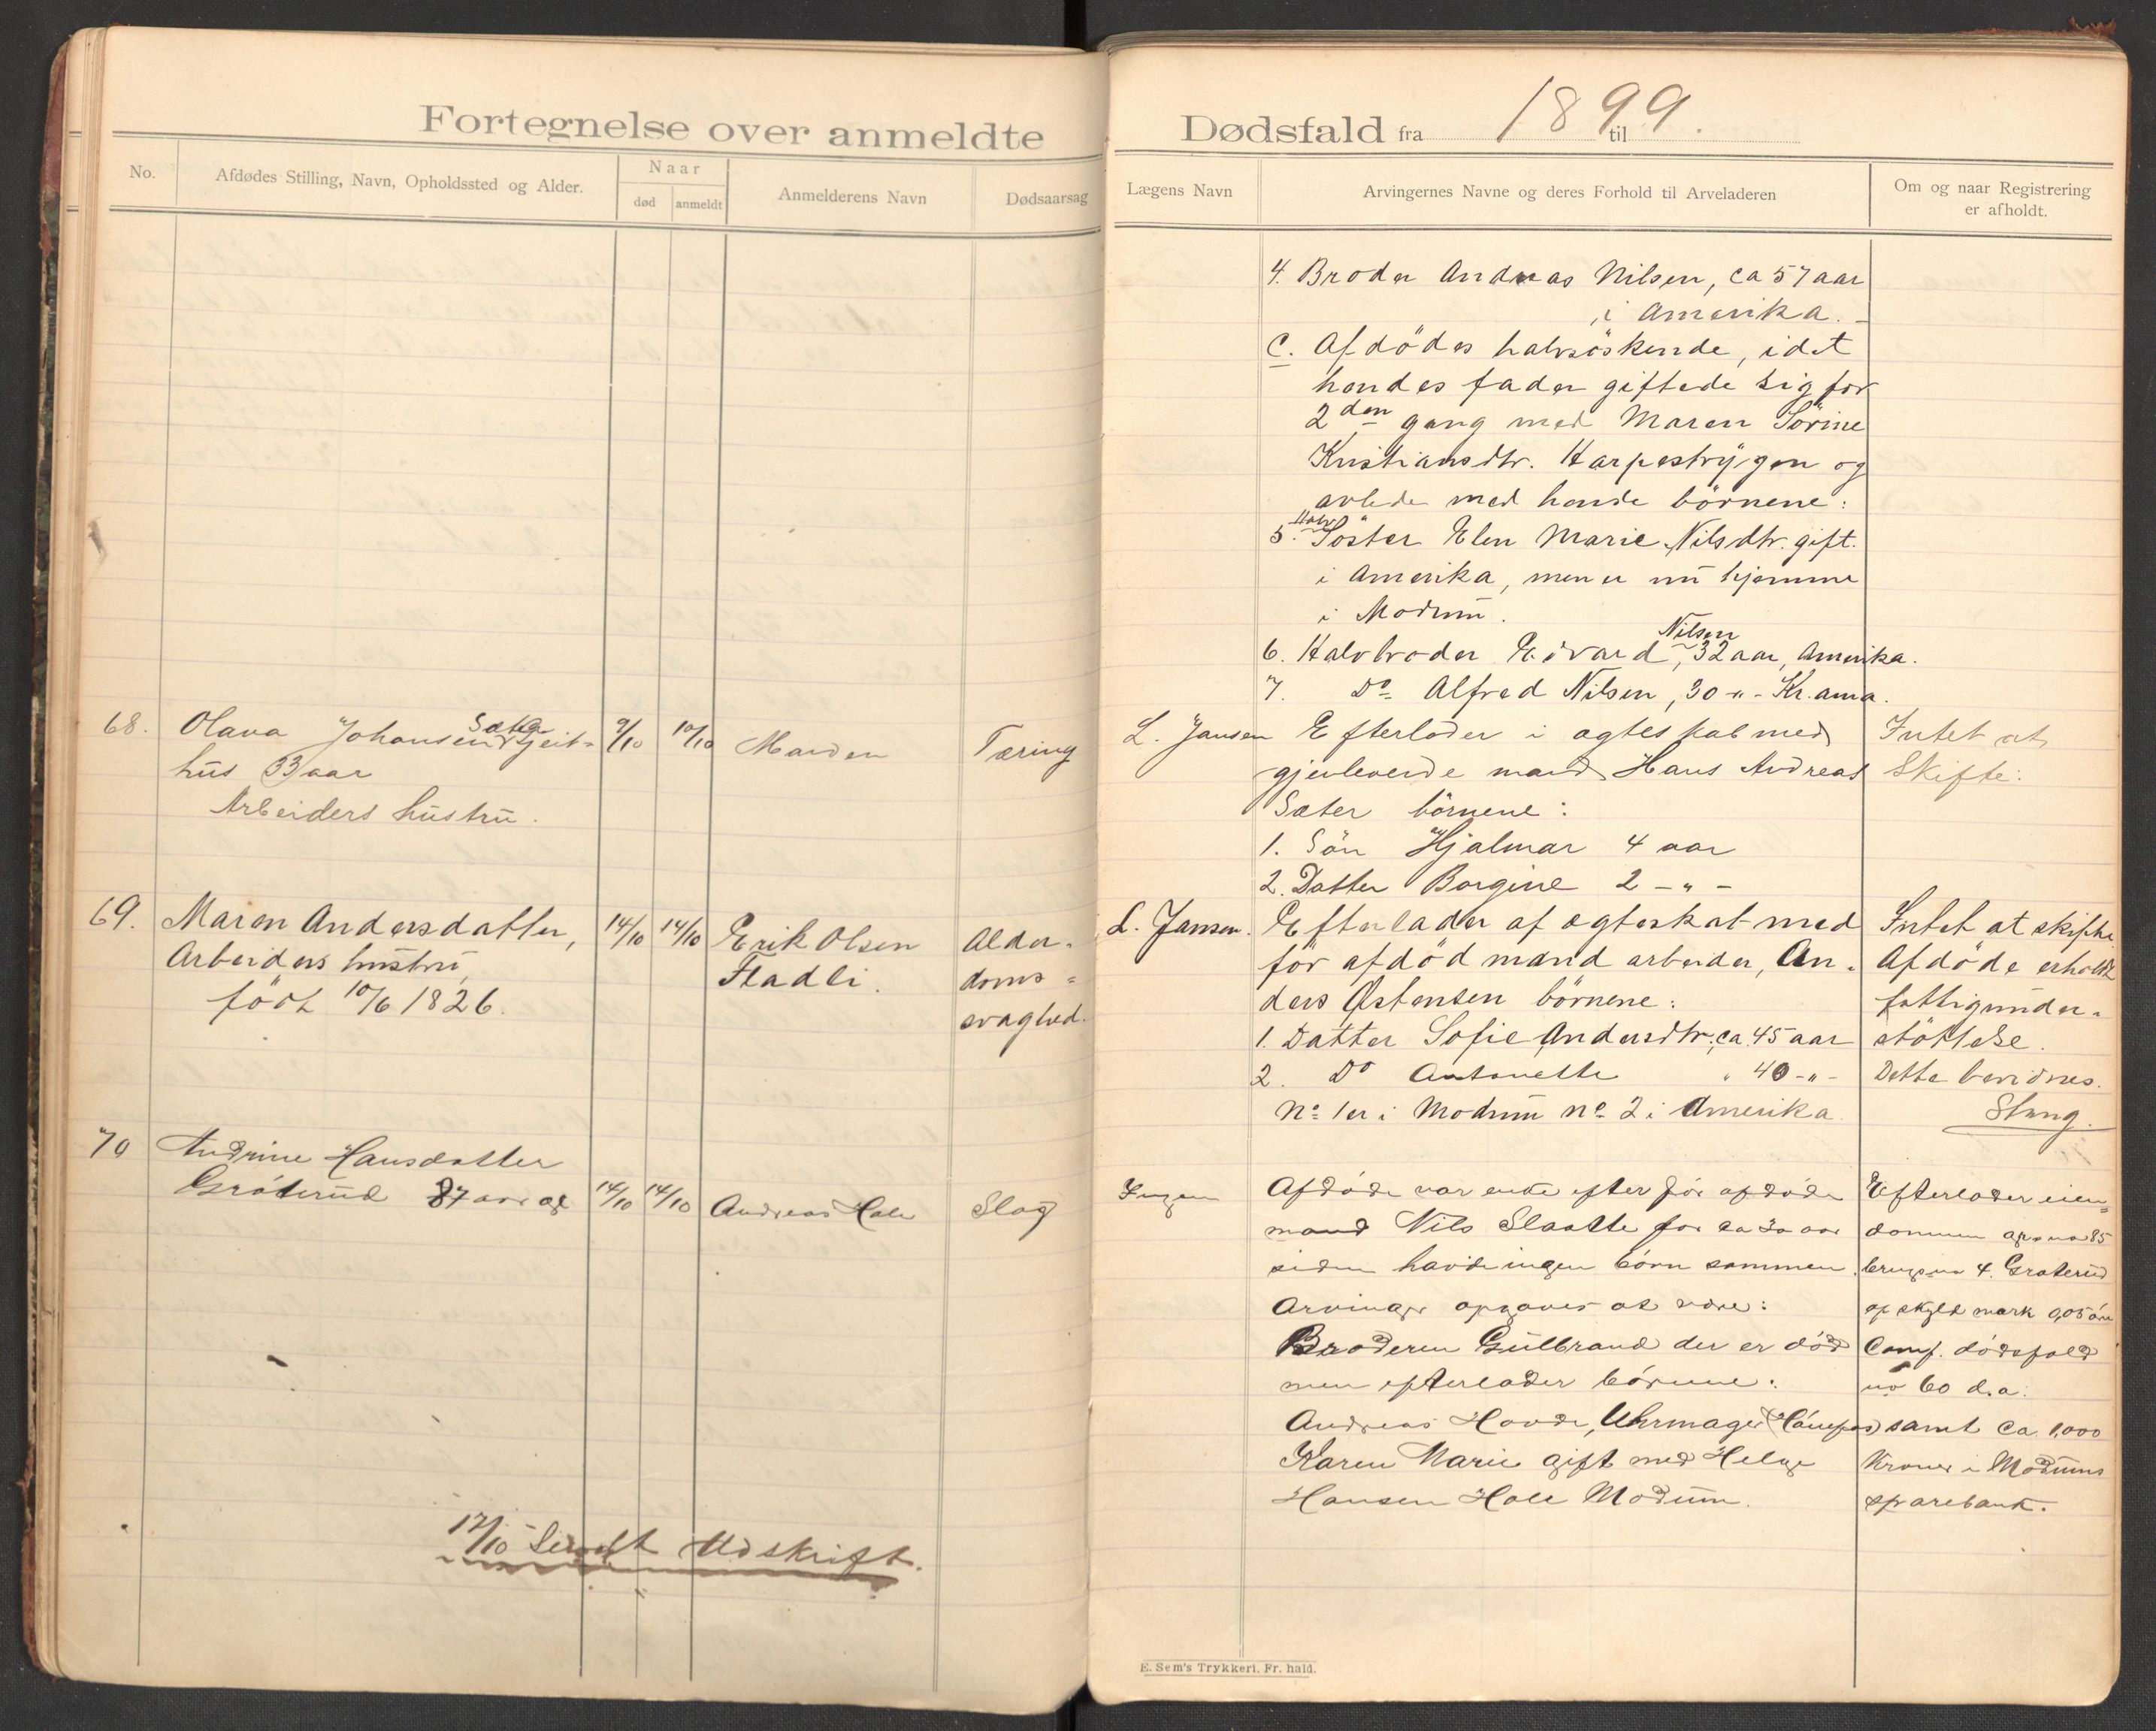 Fortegnelse over anmeldte
No.
Afdødes Stilling, Navn, Opholdssted og Alder.
Naar
død
anmeldt
Anmelderens Navn
Dødsaarsag
68.
Olava Johansen Sæter Geit=
hus 33 aar
Arbeiders hustru.
9/10
10/10
Manden
Tæring
69.
Maren Andersdatter,
Arbeiders hustru,
født 10/6 1826.
14/10
14/10
Erik Olsen
Fladli.
Alder-
doms=
svaghed.
70
Andrine Hansdatter
Gröterud 87 aar
14/10
14/10
Andreas Hole
Slag
17/10 Sendt Udskrift.
Dødsfald fra 1899. til
Lægens Navn
Arvingernes Navne og deres Forhold til Arveladeren
Om og naar Registrering
er afholdt.
4. Broder Andreas Nilsen, ca 57 aar
i Amerika. -
C. Afdödes halvsöskende, idet
hendes fader giftede sig for
2den gang med Maren Sörine
Kristiansdtr. Harpestrygen og
avlede med hende börnene:
5. Halv Söster Elen Marie Nilsdtr. gift.
i Amerika, men er nu hjemme
i Modum.
6. Halvbroder Edvard Nilsen, 32 aar, Amerika.
7. Do Alfred Nilsen, 30 -"- Kr.ania.
L. Jansen
Efterlader i ægteskab med
gjenlevende mand Hans Andreas
Sæter börnene:
1. Sön Hjalmar 4 aar
2. Datter Borgine 2 -"-
Intet at
Skifte.
L. Jansen.
Efterlader af ægteskab med
før afdöd mand arbeider, An-
ders Østensen börnene:
1. Datter Sofie Andersdtr. ca. 45 aar
2. Do Antonette " 40 -"-
No 1 er i Modum no 2 i Amerika.
Intet at skifte.
Afdöde erholdt
fattigunder-
støttelse.
Dette bevidnes.
Stang.
Ingen
Afdöde var enke efter för afdöde
mand Nils Slaatte for ca 30 aar
siden havde ingen börn sammen.
Arvinger opgaves at være:
Broderen Gulbrand der er död
men efterlader börnene:
Andreas Hovde, Uhrmager (Hönefos)
Karen Marie gift med Helge
Hansen Hole Modum.
Efterlader eien=
dommen no 85
brugsno 4. Gröterud
af skyld mark 0,05 öre
Conf. dödsfald
no 60 d.a.
samt ca. 1,000
Kroner i Modums
sparebank.
E. Sem's Trykkeri, Fr. hald.